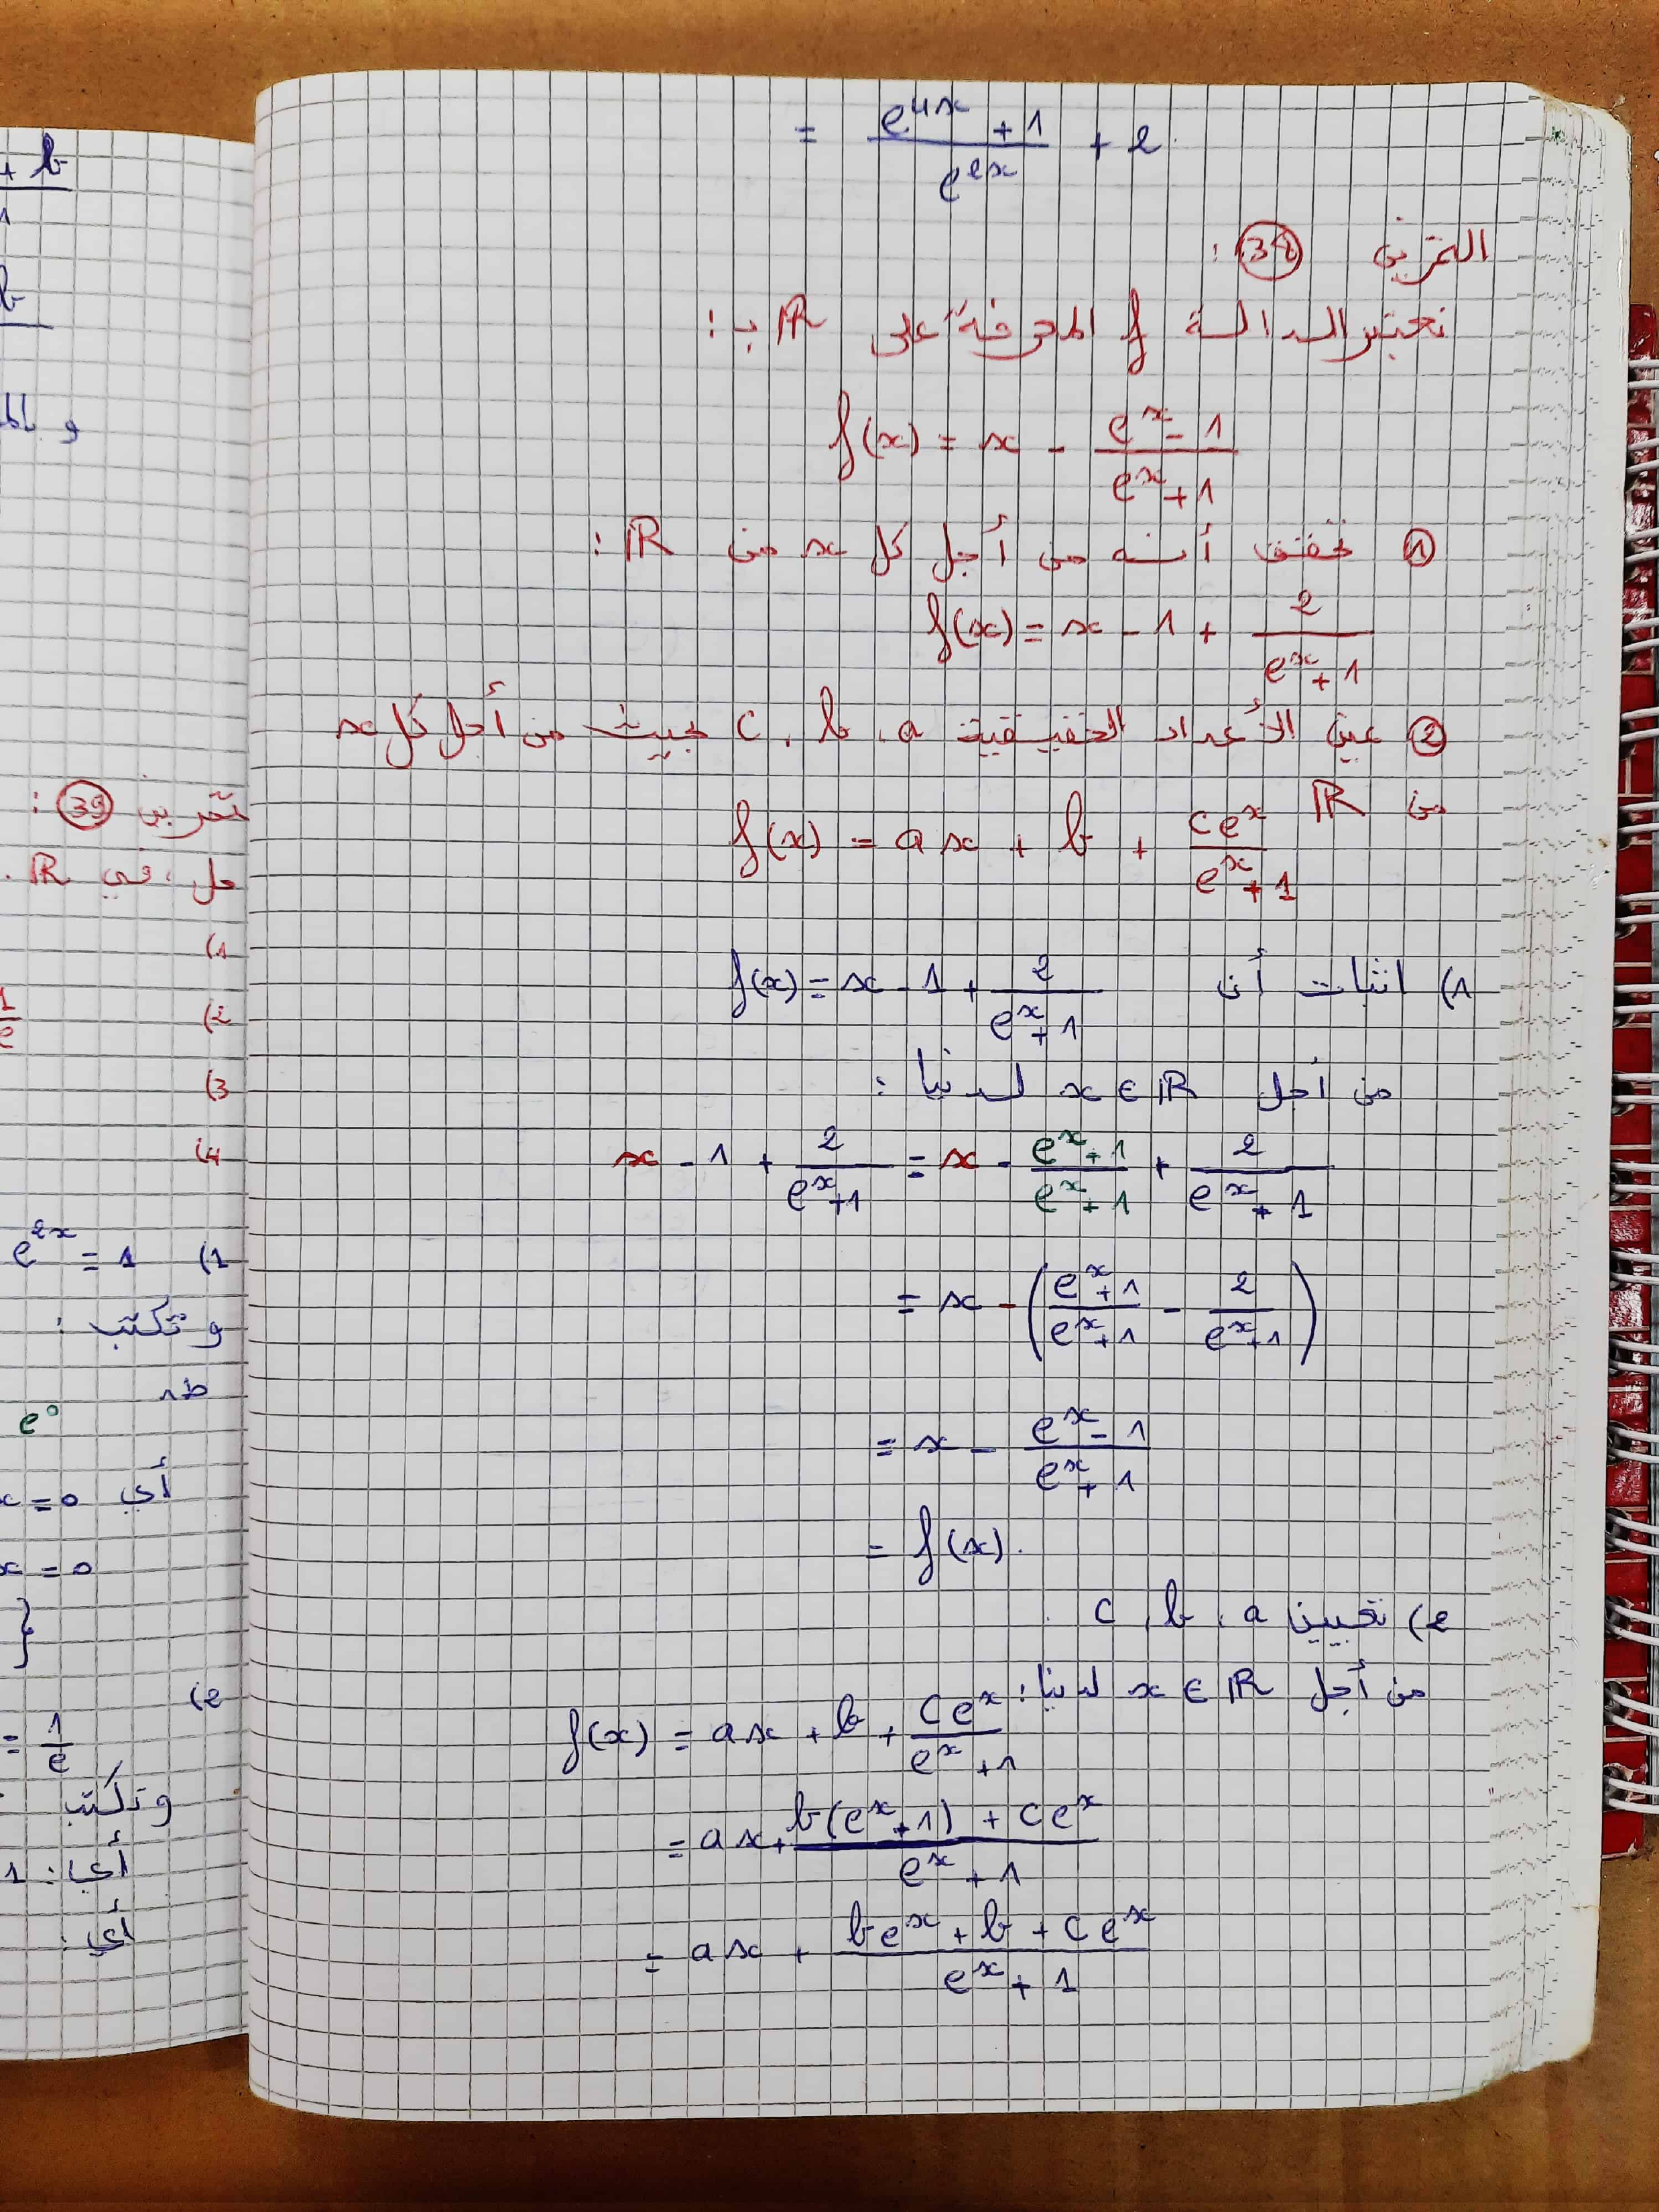 = \frac{e^{4x} + 1}{e^{2x}} + 2
التمرين 38 :
نعتبر الدالة f المعرفة على ℝ بـ :
f(x) = x - \frac{e^x - 1}{e^x + 1}
① تحقق أنه من أجل كل x من ℝ :
f(x) = x - 1 + \frac{2}{e^x + 1}
② عين الأعداد الحقيقية a ، b ، c بحيث من أجل كل x
من ℝ f(x) = ax + b + \frac{ce^x}{e^x + 1}
1) اثبات أن f(x) = x - 1 + \frac{2}{e^x + 1}
من أجل x ∈ ℝ لدينا :
x - 1 + \frac{2}{e^x + 1} = x - \frac{e^x + 1}{e^x + 1} + \frac{2}{e^x + 1}
= x - \left( \frac{e^x + 1}{e^x + 1} - \frac{2}{e^x + 1} \right)
= x - \frac{e^x - 1}{e^x + 1}
= f(x).
2) تعيين a ، b ، c .
من أجل x ∈ ℝ لدينا :
f(x) = ax + b + \frac{ce^x}{e^x + 1}
= ax + \frac{b(e^x + 1) + ce^x}{e^x + 1}
= ax + \frac{be^x + b + ce^x}{e^x + 1}
+ b
1
b
و بالم
تمرين 39 :
حل ، في ℝ .
1)
2) \frac{1}{e}
3)
4)
1) e^{2x} = 1
و تكتب :
e^0
أي x = 0
x = 0
}
2)
= \frac{1}{e}
و تكتب
أي : 1
أي :